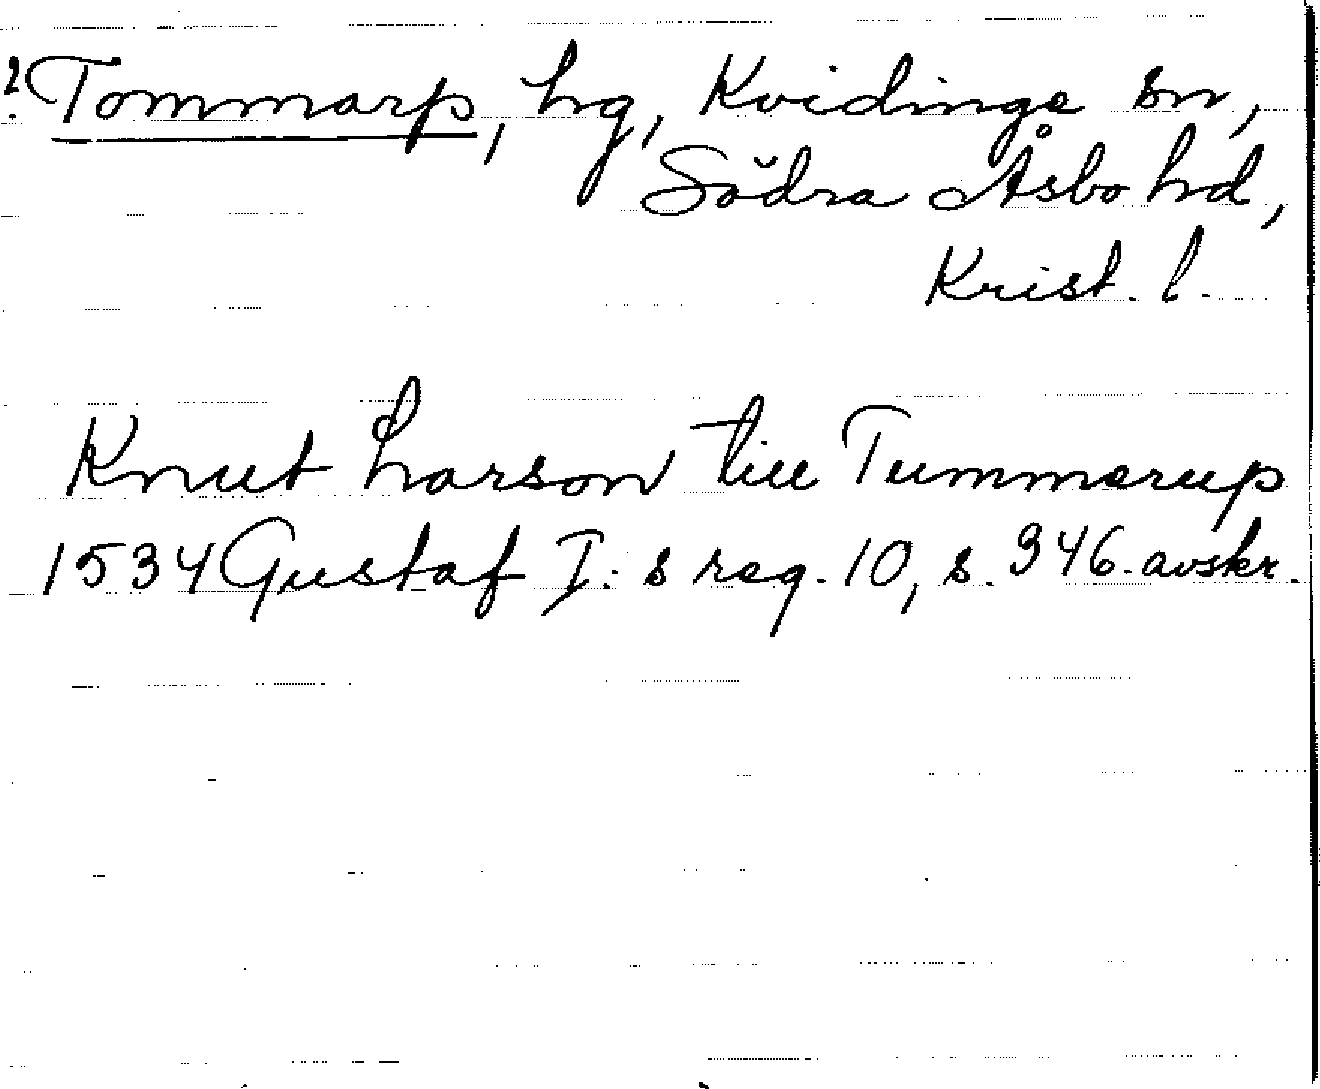 ? Tommarp, hg, Kvidinge sn,
Södra Åsbo hd,
Krist. l.
Knut Larson till Tummerup
1534 Gustaf I:s reg. 10, s. 346. avskr.